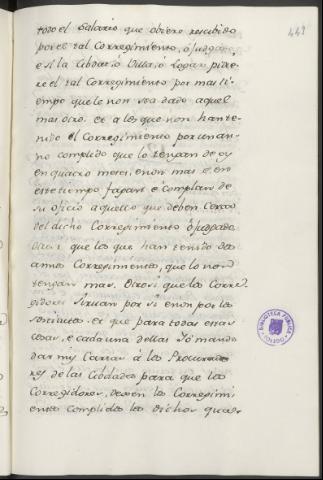 449
todo el Salario que obiere rescebido
por el tal Corregimiento, o Judgado,
e si la Cibdat o Villa, o logar pidie-
re el tal Corregimiento por mas ti-
empo que le non sea dado aquel
mas otro. et a les que non han te-
nido el Corregimiento por un an-
no complido que lo tengan de oy
en quatro meses, e non mas e en
este tiempo fagan e complan de
su oficio aquello que deben Cerca
del dicho Corregimiento o Judgado
que los que han tenido dos
annos Corregimientos, que lo non
tengan mas. Otrosi que los Corre-
gidores sirvan por si e non por los
sostitutos. et que para todas estas
cosas, e cada una dellas Yo mando
dar mis Cartas á los Procurado-
res de las Cibdades para que los
Corregidores, dexen los Corregimi-
entos complidos los dichos quatr-
BIBLIOTECA PUBLICA
TOLEDO